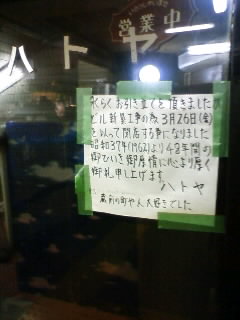 営業中
ハトヤ
永らくお引き立てを頂きましたが
ビル新築工事の為3月26日(金)
を以って閉店する事になりました
昭和37年(1962)より48年間の
御ひいき御厚情に心より厚く
御礼申し上げます。
ハトヤ
蔵前の町や人大好きでした